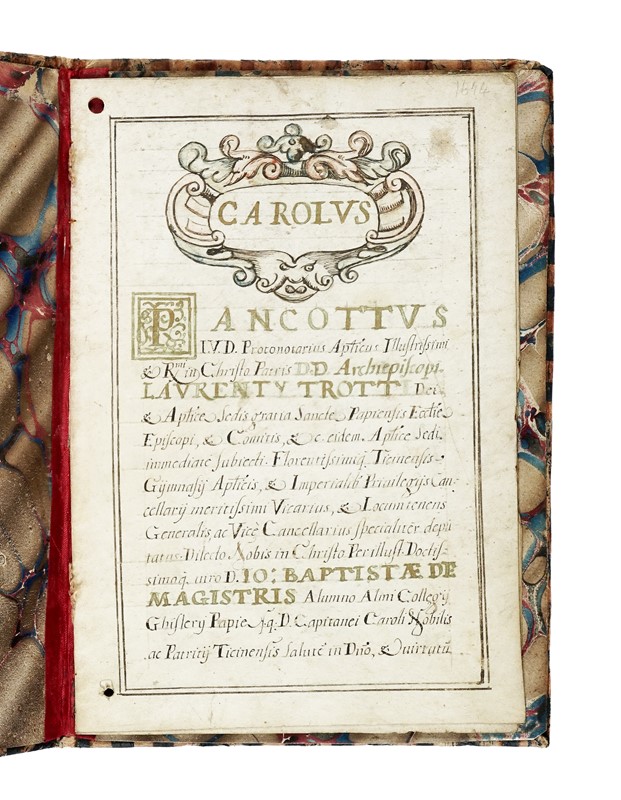 1694
CAROLVS
PANCOTTVS
I.V.D. Protonotarius Aptīcus Illustrissimi
& Rmi in Christo Patris D.D. Archiepiscopi
LAVRENTY TROTTI Dei
& Aptīce Sedis gratia Sancte Papiensis Ecctīe
Episcopi, & Comitis, & c. eidem Aptīce Sedi
immediate subiecti. Florentissimiq. Ticinensis
Gymnasij Aptīcis, & Imperialib' Privilegijs Can-
cellarij meritissimi Vicarius, & Locumtenens
Generalis, ac Vice Cancellarius specialiter depu
tatus. Dilecto Nobis in Christo Per illust. Doctis-
simoq. viro D. IO: BAPTISTÆ DE
MAGISTRIS Alumno Almi Collegij
Ghislerij Papie q. D. Capitanei Caroli Nobilis
ac Patritij Ticinensis salutē in Dn̄o, & Virtutū